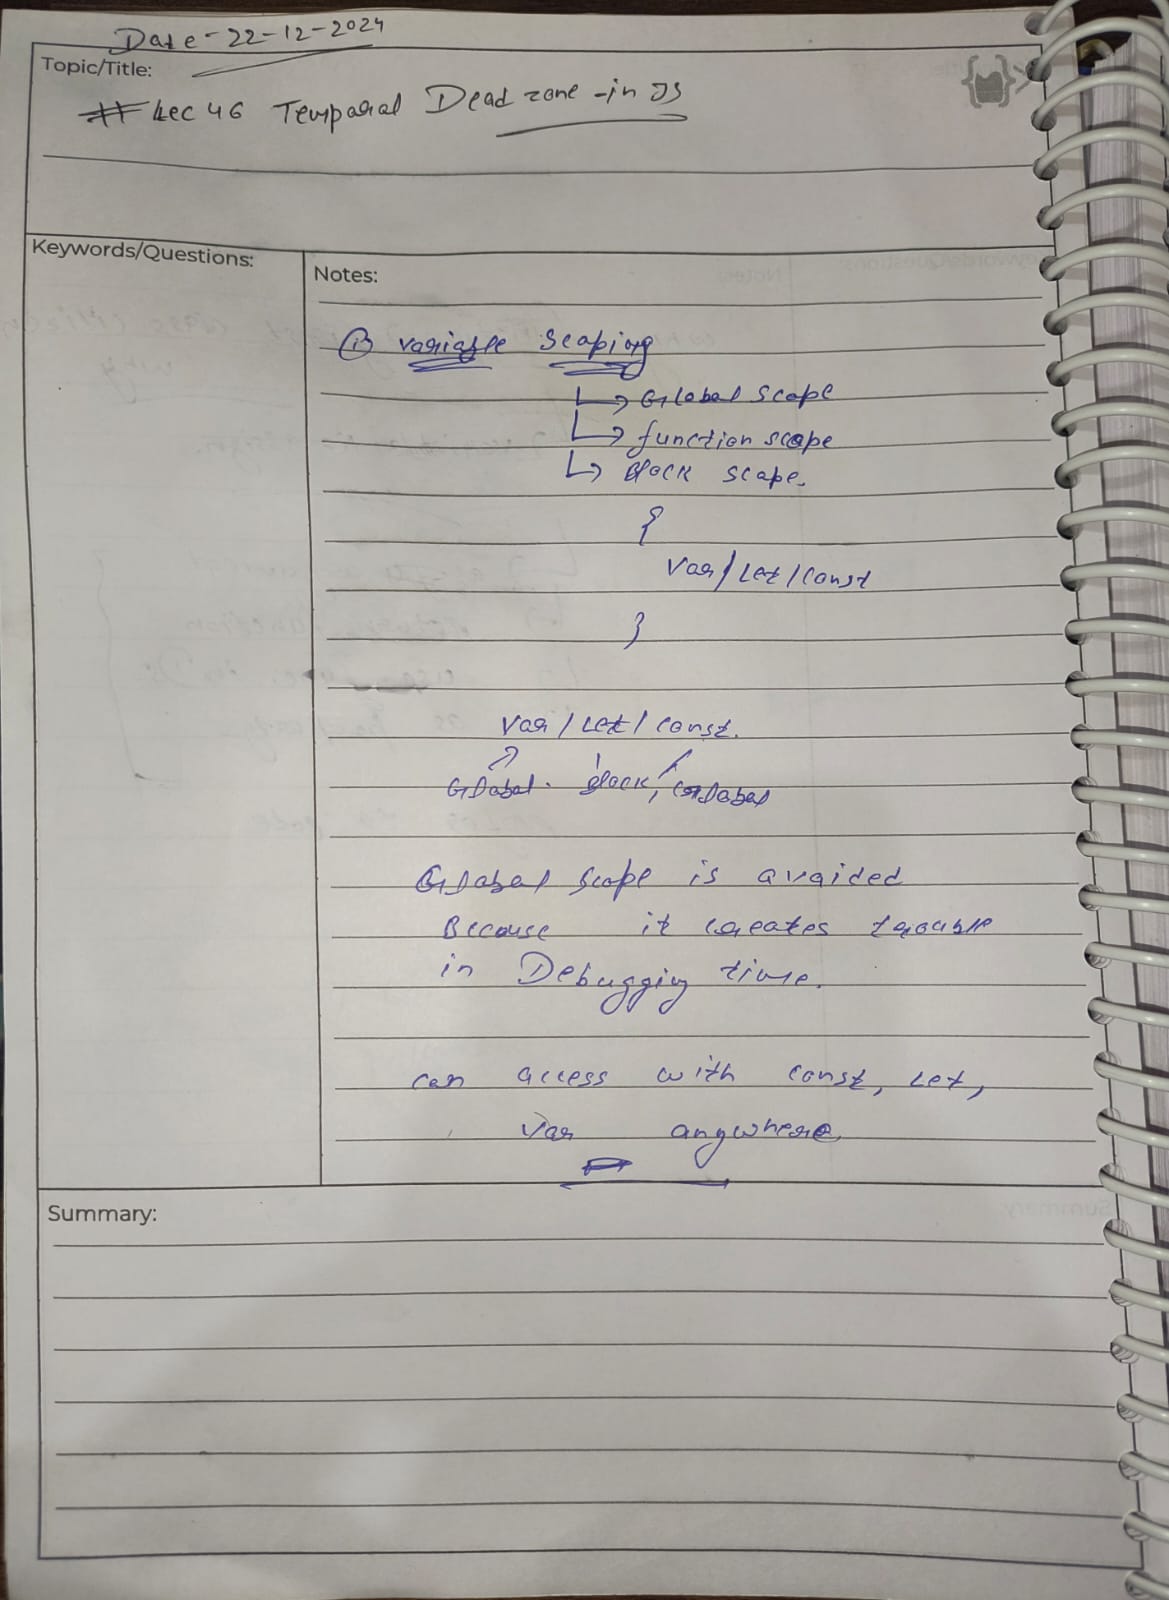 Date - 22-12-2024
Topic/Title:
# Lec 46 Temporal Dead zone - in JS
Keywords/Questions:
Notes:
① variable Scoping
↳ Global Scope
↳ function scope
↳ Block scope.
{
Var/Let/Const
}
Var / Let / Const.
Global. Block, Global
Global Scope is avoided
Because it creates trouble
in Debugging time.
can access with const, Let,
Var anywhere.
Summary: